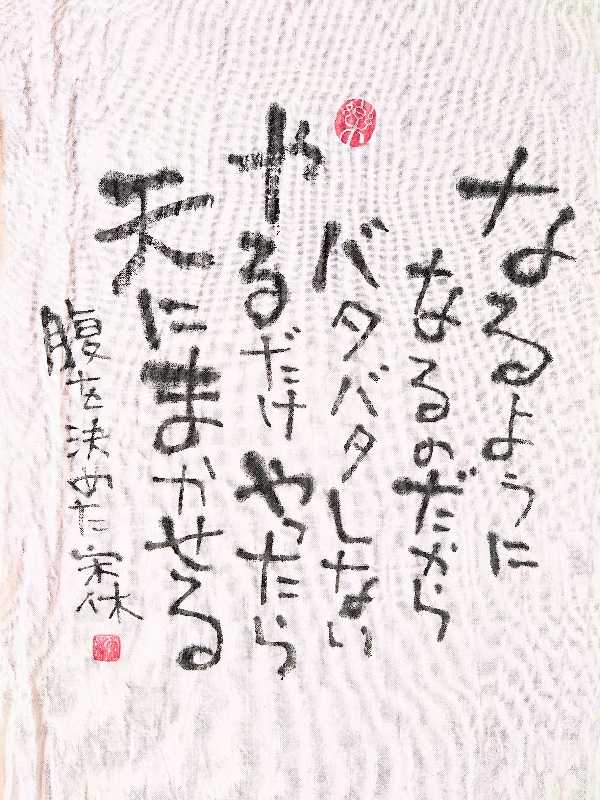 なるように
なるのだから
バタバタしない
やるだけやったら
天にまかせる
腹を決めた宗休